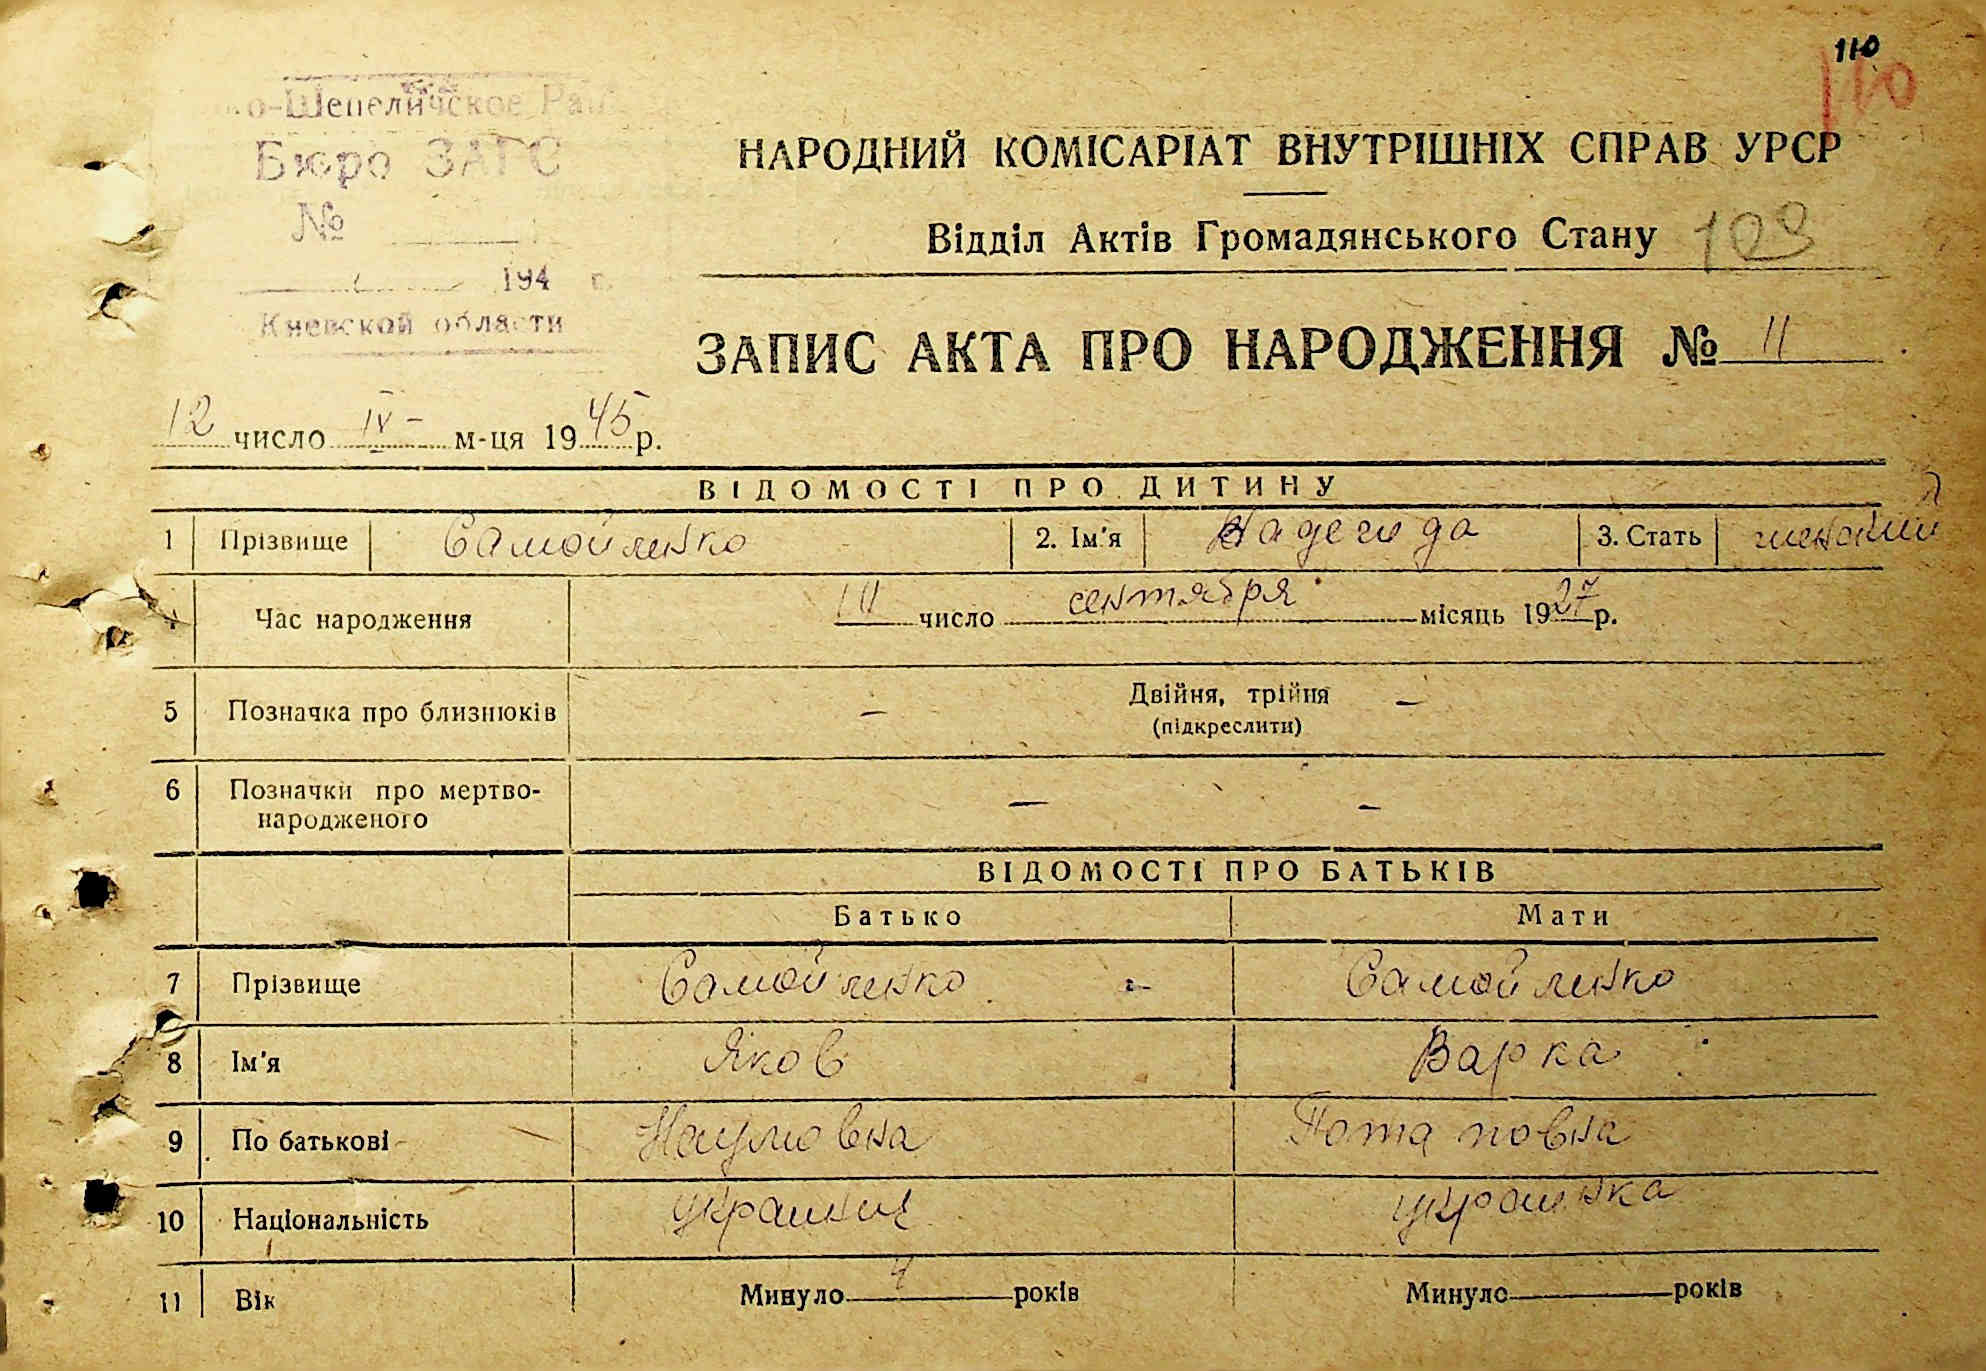 110
110
о-Шепеличское Рай
Бюро ЗАГС
№
194 г.
Киевской области
НАРОДНИЙ КОМІСАРІАТ ВНУТРІШНІХ СПРАВ УРСР
Відділ Актів Громадянського Стану 109
ЗАПИС АКТА ПРО НАРОДЖЕННЯ № 11
12 число IV- м-ця 1945 р.
ВІДОМОСТІ ПРО ДИТИНУ
1 Прізвище Самойленко 2. Ім'я Надегода 3. Стать
4 Час народження число сентября місяць 1927 р.
5 Позначка про близнюків – Двійня, трійня –
(підкреслити)
6 Позначки про мертво-
народженого – –
ВІДОМОСТІ ПРО БАТЬКІВ
Батько Мати
7 Прізвище Самойленко - Самойленко
8 Ім'я Яков Варка
9 По батькові Наумовна Потаповна
10 Національність украинец украинка
11 Вік Минуло років Минуло років